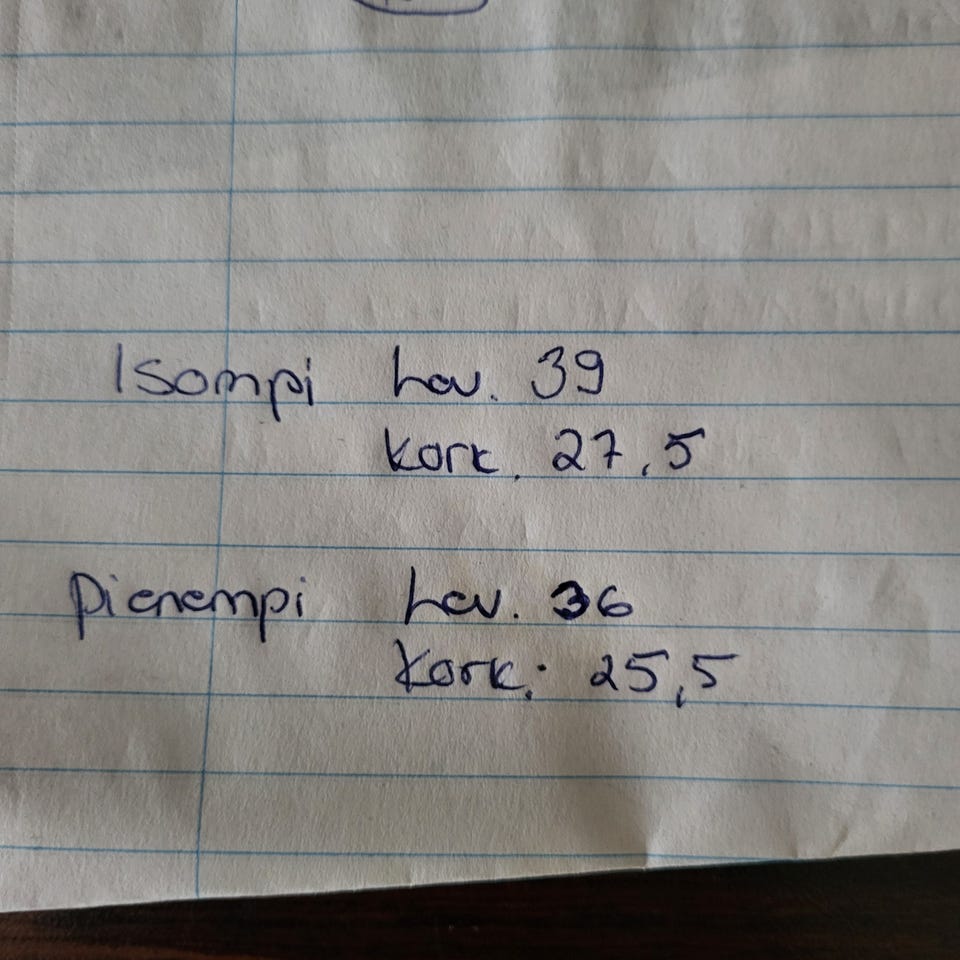 Isompi Lev. 39
Kork. 27,5
Pienempi Lev. 36
Kork: 25,5